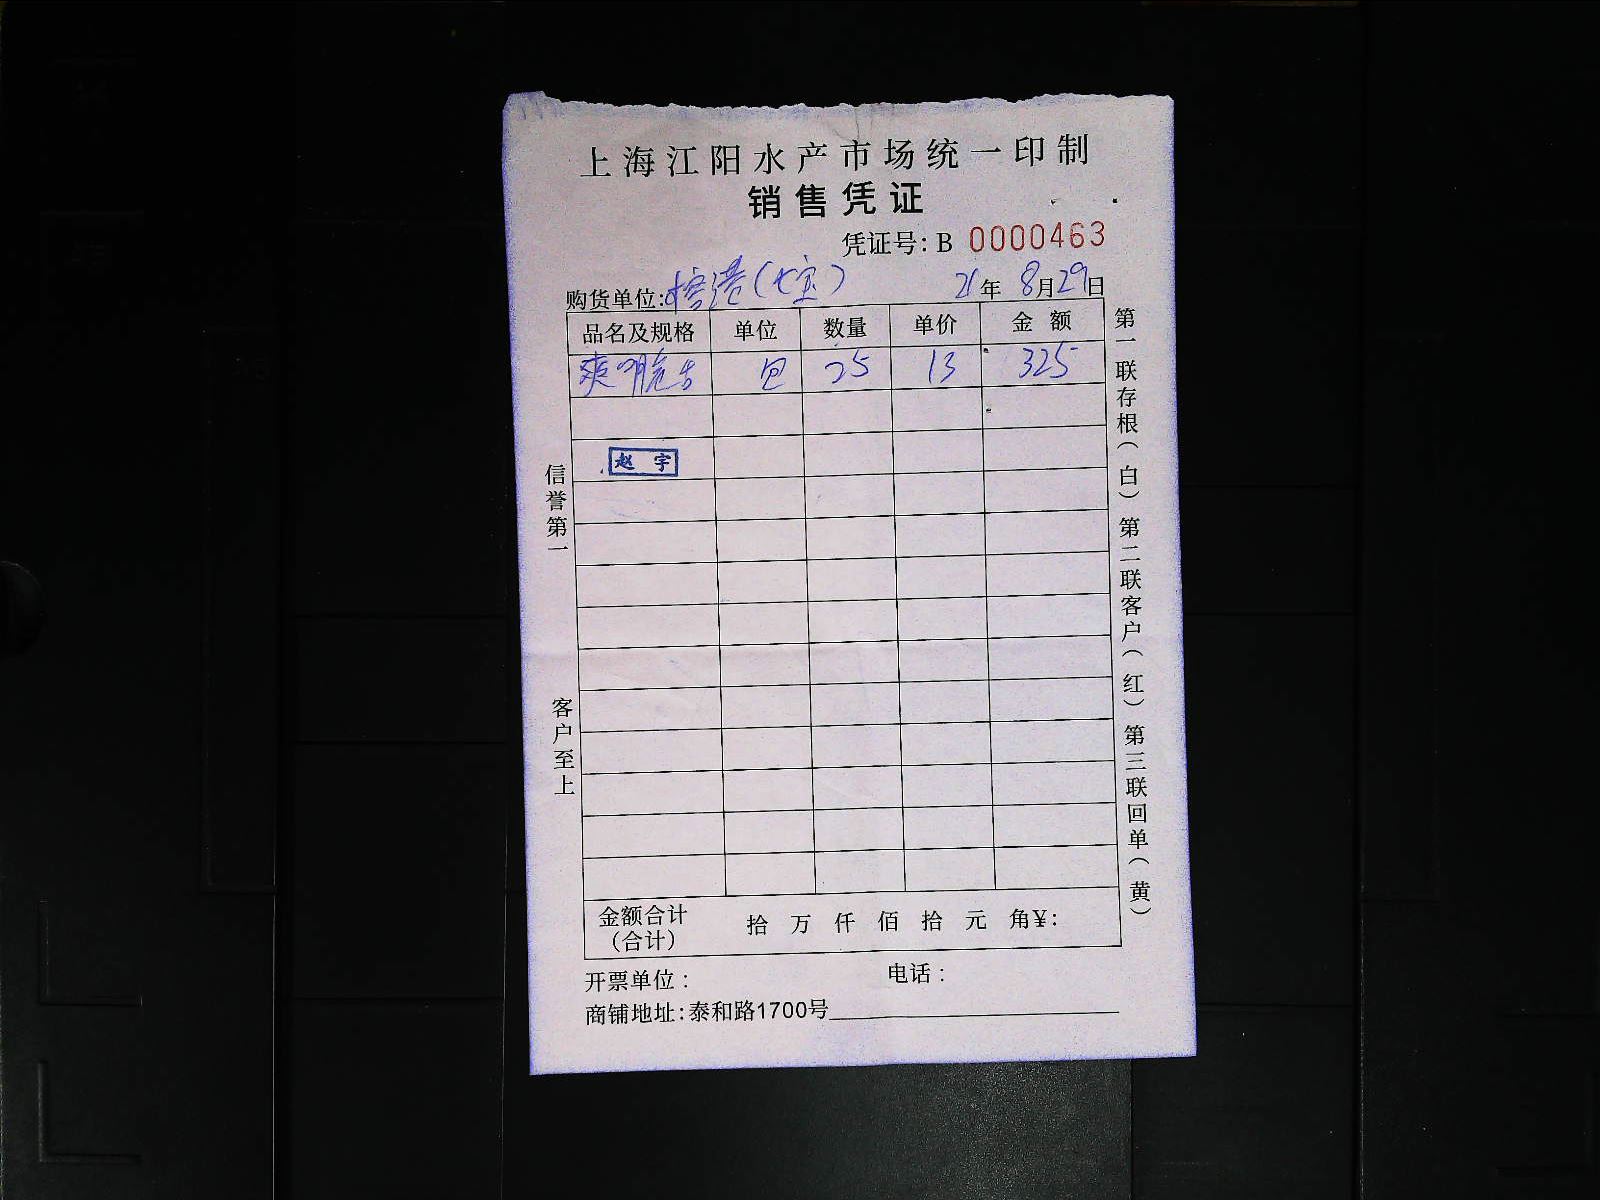 上海江阳水产市场统一印制
销售凭证
凭证号: B 0000463
购货单位: 港(七宝) 21年 8月29日
品名及规格 单位 数量 单价 金额
爽 脆 包 25 13 325
赵宇
金额合计 拾 万 仟 佰 拾 元 角¥:
(合计)
开票单位: 电话:
商铺地址: 泰和路1700号
信誉第一
客户至上
第一联存根(白)第二联客户(红)第三联回单(黄)